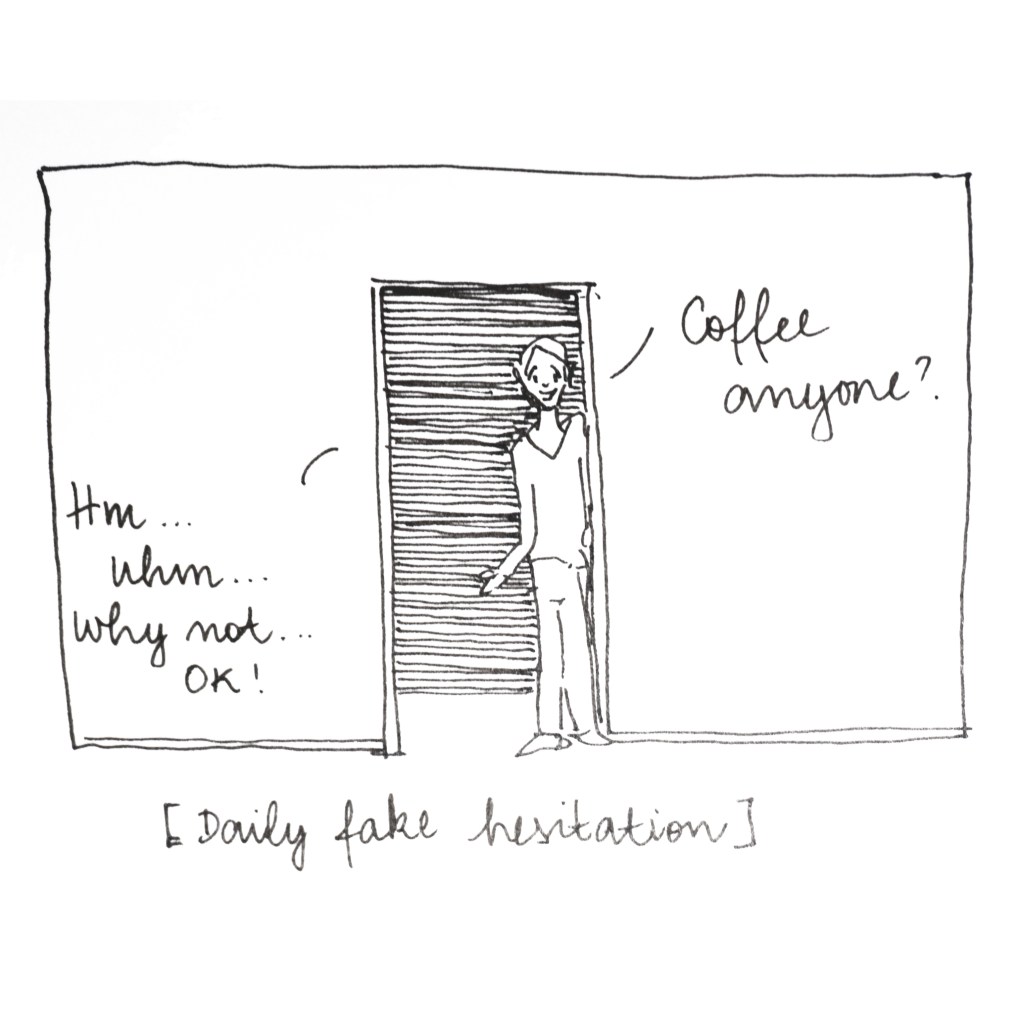 Coffee
anyone?
Hm...
uhm...
why not...
OK!
[Daily fake hesitation]